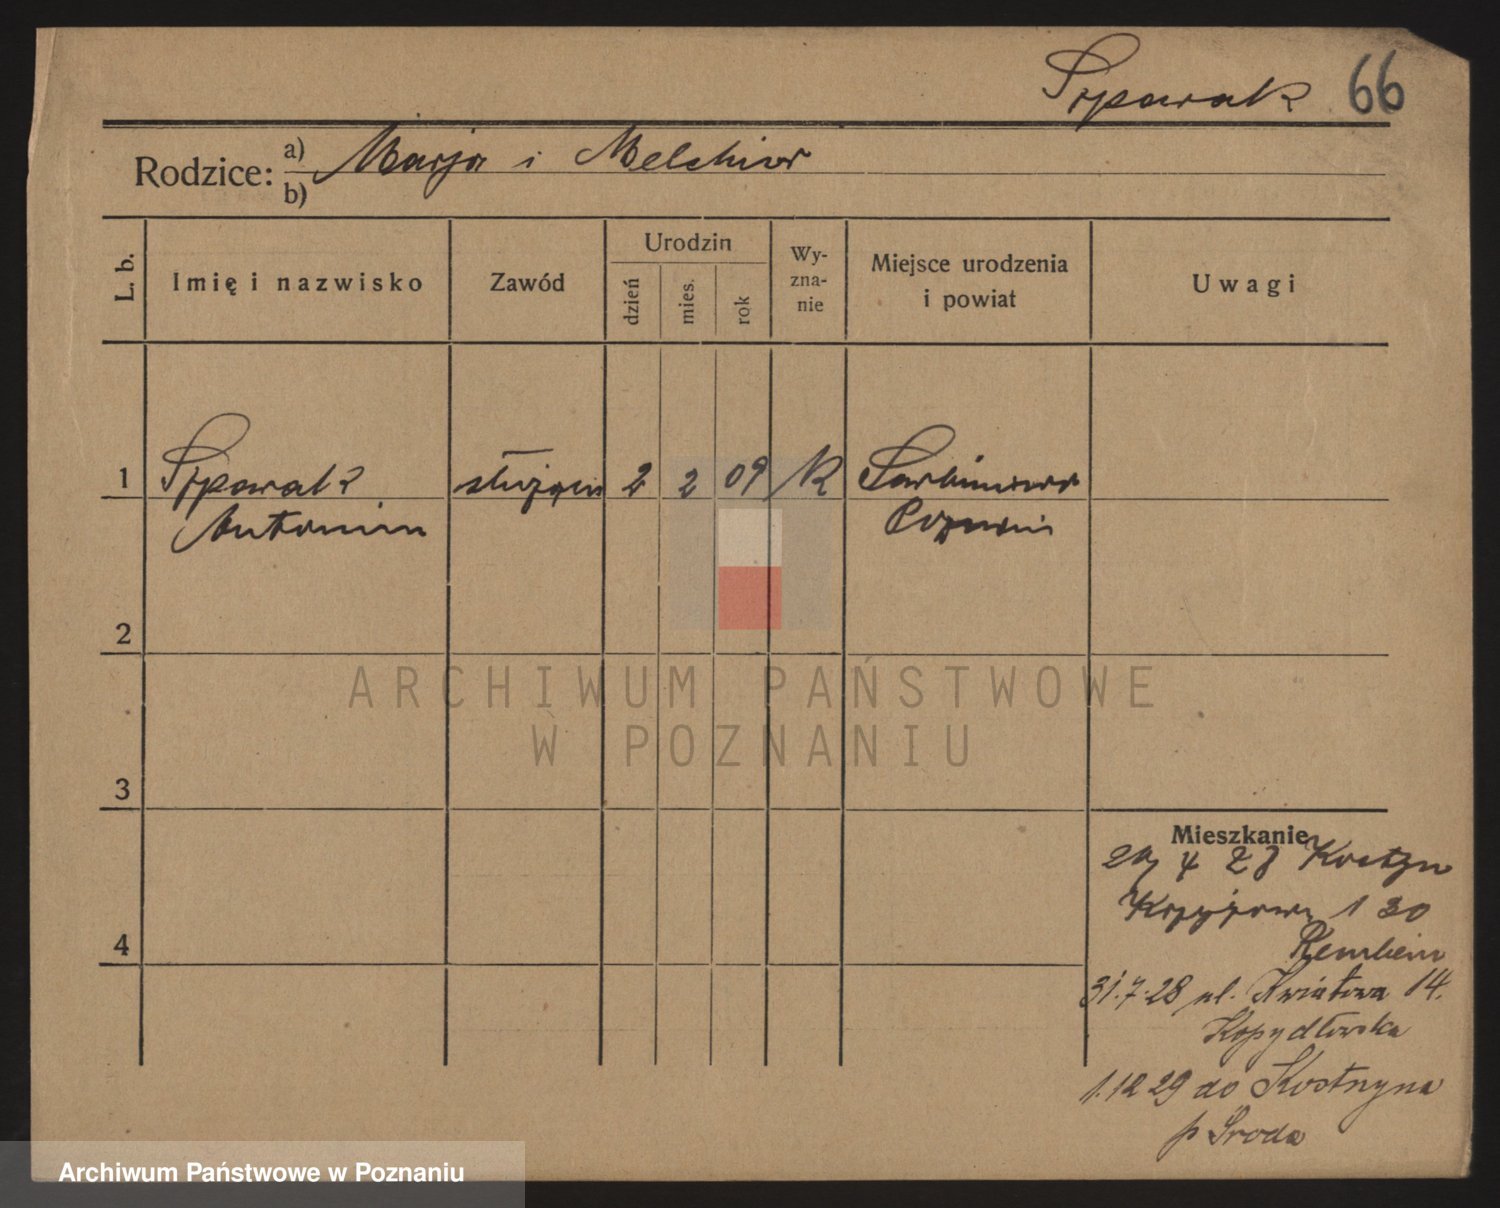 Śpowak 66
Rodzice: a) Marja i Melchior
b)
L. b.
Imię i nazwisko
Zawód
Urodzin
dzień
mies.
rok
Wy-
zna-
nie
Miejsce urodzenia
i powiat
Uwagi
1 służąca 2 2 09 K
Antonina
2
3
4
Mieszkanie
4 28 Kostrzyn
1 30
31.7.28 ul. Kwiatowa 14.
Kopydłowska
1.12 29 do Kostrzyna
p Środa
ARCHIWUM PAŃSTWOWE
W POZNANIU
Archiwum Państwowe w Poznaniu